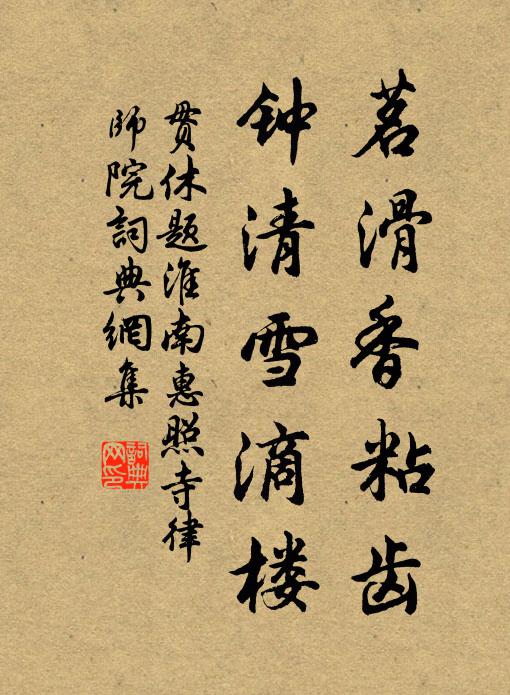 茗滑香粘齿
钟清雪滴楼
贯休题淮南惠照寺律
师院詞典網集
詞典网印